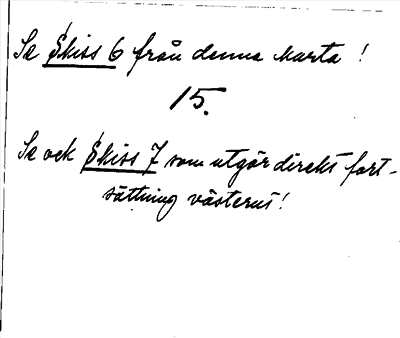 Se Skiss 6 från denna karta!
15.
Se ock Skiss 7 som utgör direkt fort-
sättning västerut!